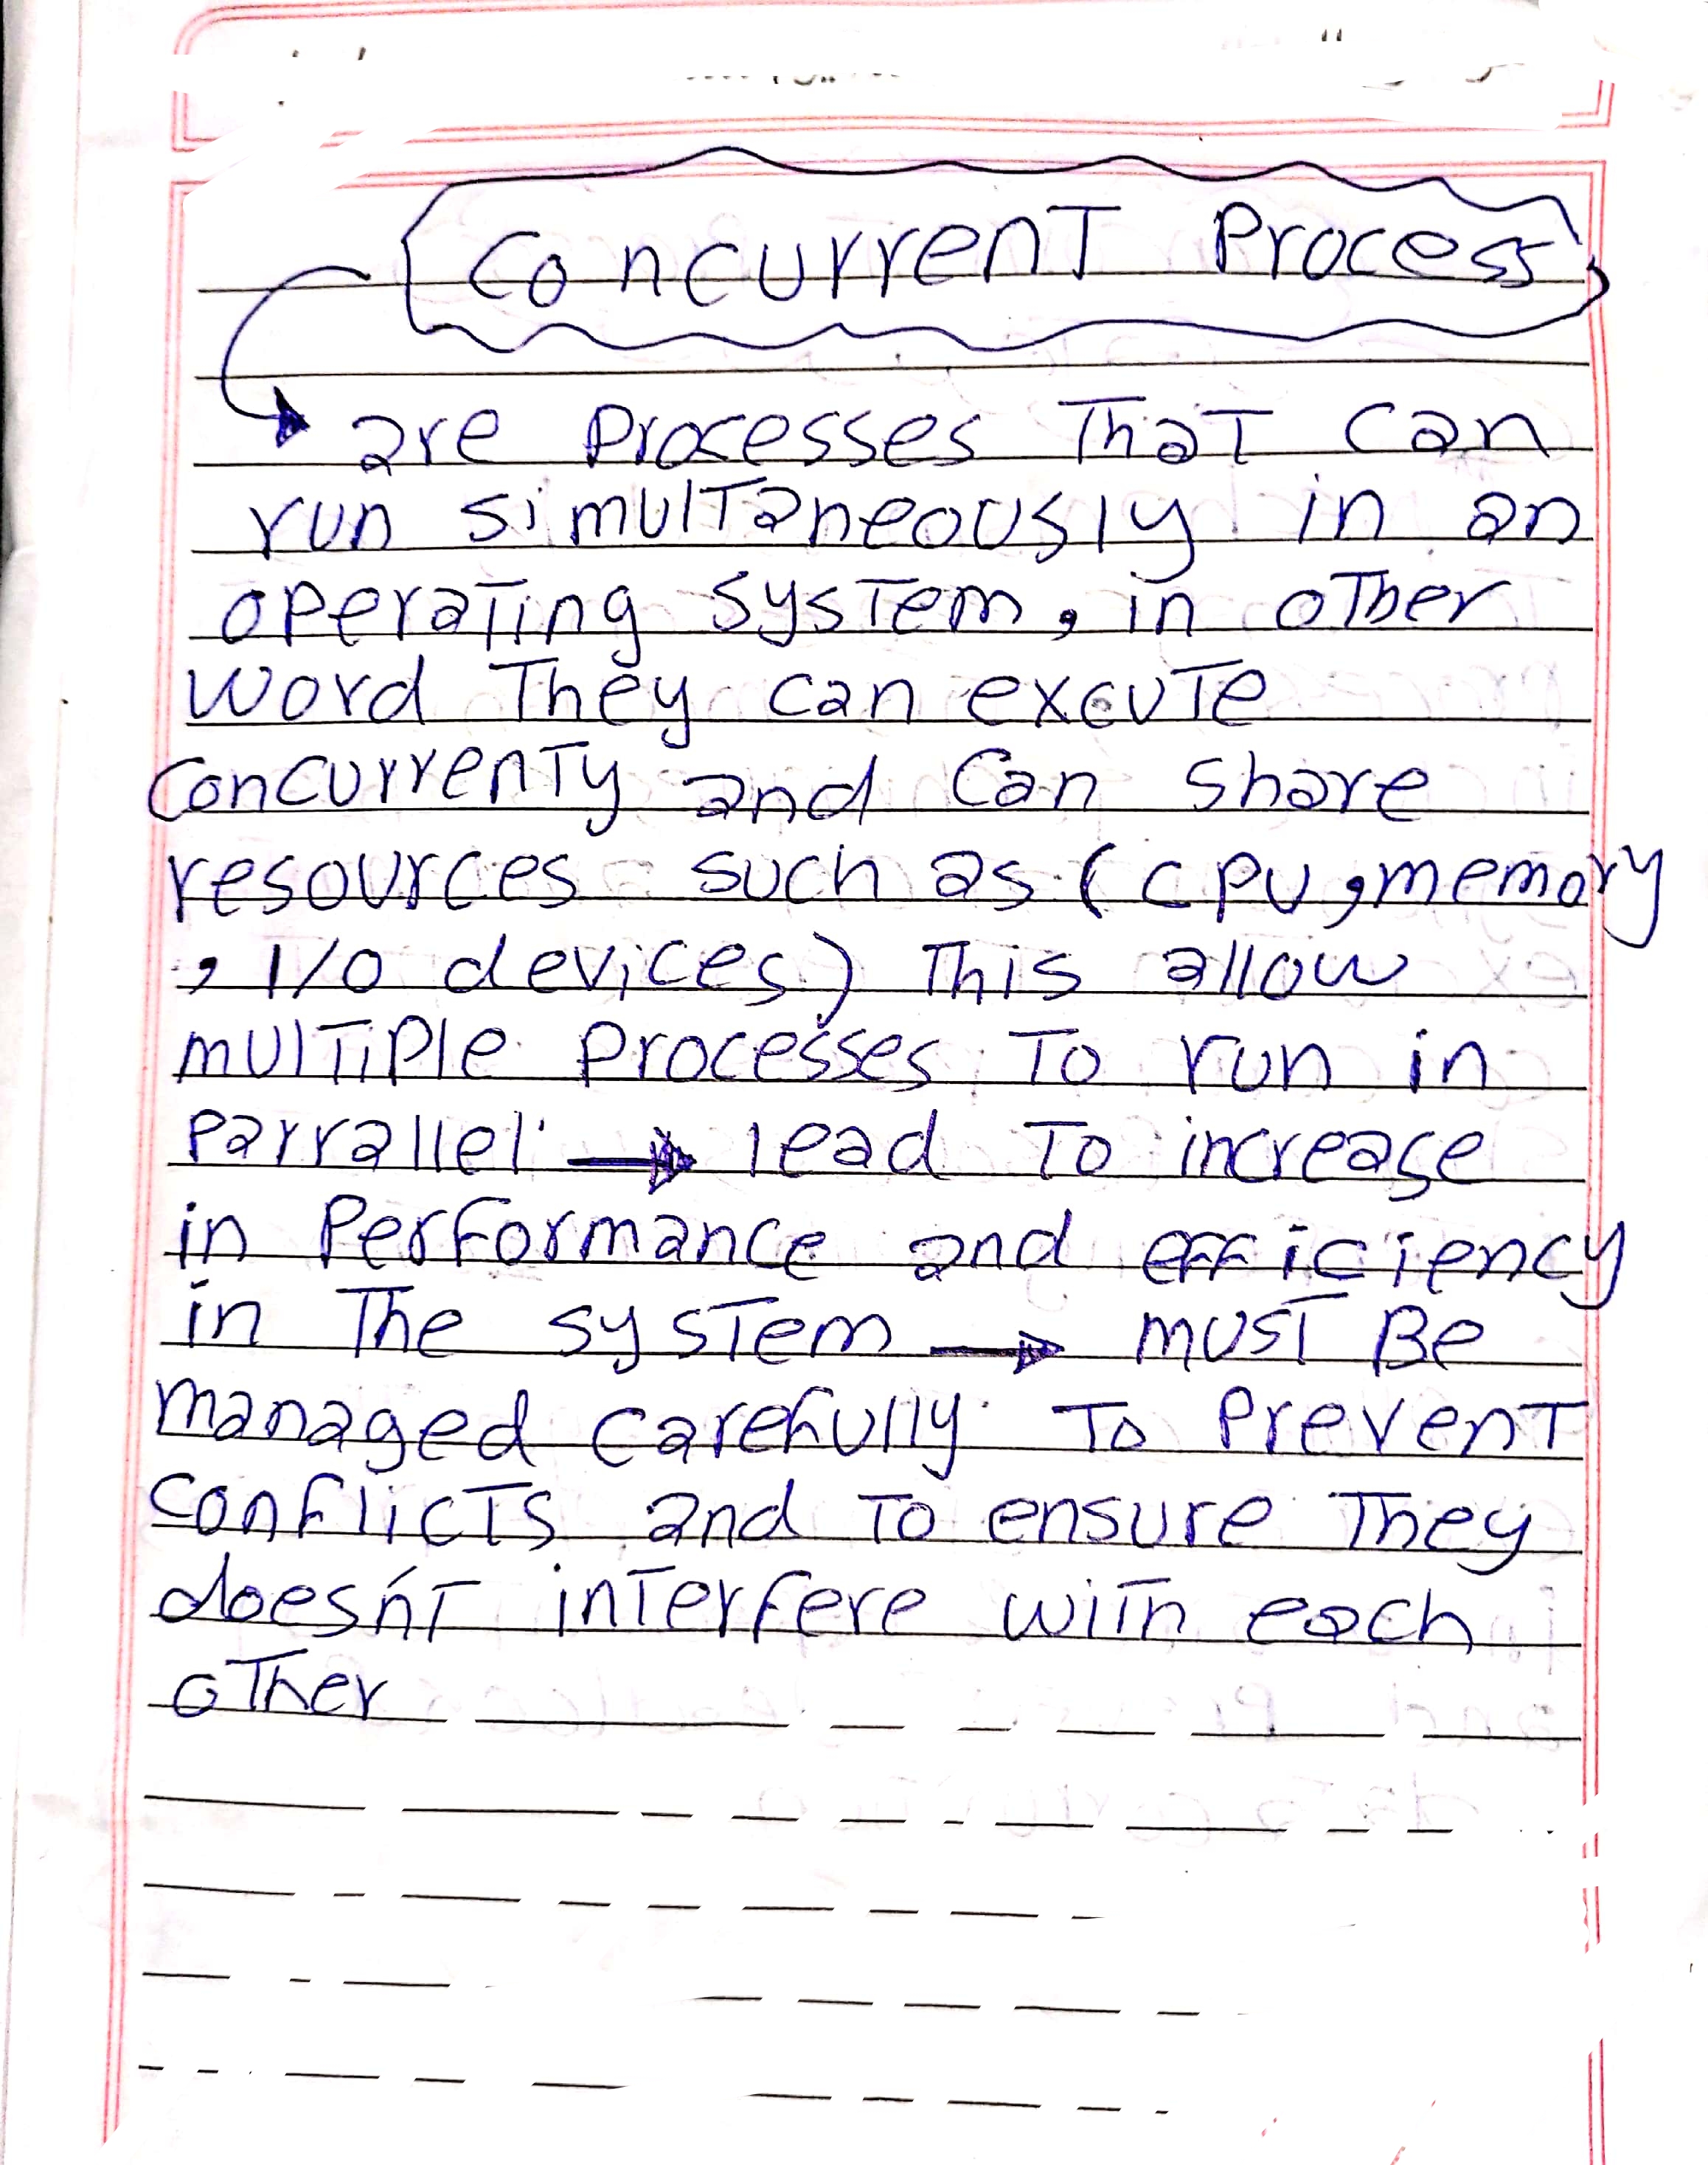 Concurrent Process
are processes that can
run simultaneously in an
operating system, in other
word they can excute
concurrenty and can share
resources such as (cpu, memory
, I/O devices) This allow
multiple processes to run in
parrallel → lead to increase
in performance and efficiency
in the system → must Be
managed carefully to prevent
conflicts and to ensure they
does'nt interfere with each
other